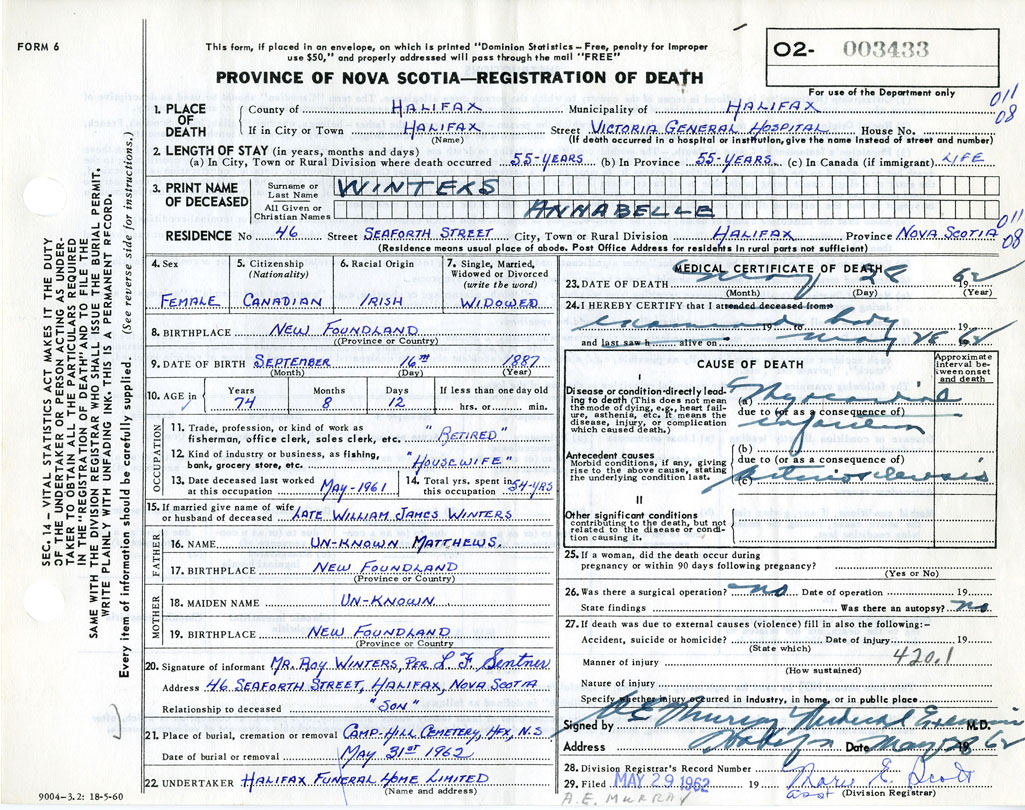 FORM 6
This form, if placed in an envelope, on which is printed "Dominion Statistics – Free, penalty for improper
use $50," and properly addressed will pass through the mail "FREE"
PROVINCE OF NOVA SCOTIA—REGISTRATION OF DEATH
O2- 003433
For use of the Department only
011
08
1. PLACE OF DEATH
County of HALIFAX Municipality of HALIFAX
If in City or Town HALIFAX Street VICTORIA GENERAL HOSPITAL House No.
(Name) (If death occurred in a hospital or institution, give name instead of street and number)
2. LENGTH OF STAY (in years, months and days)
(a) In City, Town or Rural Division where death occurred 55-YEARS (b) In Province 55-YEARS (c) In Canada (if immigrant) LIFE
3. PRINT NAME OF DECEASED
Surname or Last Name WINTERS
All Given or Christian Names ANNABELLE
011
08
RESIDENCE No 46 Street SEAFORTH STREET City, Town or Rural Division HALIFAX Province NOVA SCOTIA
(Residence means usual place of abode. Post Office Address for residents in rural parts not sufficient)
4. Sex
FEMALE
5. Citizenship (Nationality)
CANADIAN
6. Racial Origin
IRISH
7. Single, Married, Widowed or Divorced (write the word)
WIDOWED
8. BIRTHPLACE NEW FOUNDLAND
(Province or Country)
9. DATE OF BIRTH SEPTEMBER 16TH 1887
(Month) (Day) (Year)
10. AGE in
Years Months Days If less than one day old
74 8 12 hrs. or min.
OCCUPATION
11. Trade, profession, or kind of work as
fisherman, office clerk, sales clerk, etc. "RETIRED"
12. Kind of industry or business, as fishing,
bank, grocery store, etc. "HOUSEWIFE"
13. Date deceased last worked
at this occupation MAY-1961
14. Total yrs. spent in
this occupation 54-YRS
15. If married give name of wife
or husband of deceased LATE WILLIAM JAMES WINTERS
FATHER
16. NAME UN-KNOWN MATTHEWS.
17. BIRTHPLACE NEW FOUNDLAND
(Province or Country)
MOTHER
18. MAIDEN NAME UN-KNOWN
19. BIRTHPLACE NEW FOUNDLAND
(Province or Country
20. Signature of informant MR. ROY WINTERS, PER L. F. Sentner
Address 46 SEAFORTH STREET, HALIFAX, NOVA SCOTIA
Relationship to deceased "SON"
21. Place of burial, cremation or removal CAMP-HILL CEMETERY, HFX, N.S.
Date of burial or removal MAY 31ST 1962
22. UNDERTAKER HALIFAX FUNERAL HOME LIMITED
(Name and address)
9004–3.2: 18-5-60
MEDICAL CERTIFICATE OF DEATH
23. DATE OF DEATH May 28 62
(Month) (Day) (Year)
24. I HEREBY CERTIFY that I attended deceased from
examined body 19 to 19
and last saw h alive on May 28 62
CAUSE OF DEATH
Approximate interval between onset and death
I
Disease or condition directly leading to death (This does not mean the mode of dying, e.g., heart failure, asthenia, etc. It means the disease, injury, or complication which caused death.)
(a) Myocardial
due to (or as a consequence of)
infarction
Antecedent causes
Morbid conditions, if any, giving rise to the above cause, stating the underlying condition last.
(b)
due to (or as a consequence of)
(c) Arteriosclerosis
II
Other significant conditions
contributing to the death, but not related to the disease or condition causing it.
25. If a woman, did the death occur during
pregnancy or within 90 days following pregnancy?
(Yes or No)
26. Was there a surgical operation? no Date of operation 19
State findings Was there an autopsy? no
27. If death was due to external causes (violence) fill in also the following:–
Accident, suicide or homicide? Date of injury 19
(State which)
420.1
Manner of injury
(How sustained)
Nature of injury
Specify whether injury occurred in Industry, in home, or in public place
Signed by Murray Medical Examiner M.D.
Address Halifax Date May 29 1962
28. Division Registrars Record Number
29. Filed MAY 29 1962 19 Scott
asst (Division Registrar)
A.E. MURRAY
SEC. 14 – VITAL STATISTICS ACT MAKES IT THE DUTY
OF THE UNDERTAKER OR PERSON ACTING AS UNDER-
TAKER TO OBTAIN ALL THE PARTICULARS REQUIRED
IN THE "REGISTRATION OF DEATH" AND TO FILE THE
SAME WITH THE DIVISION REGISTRAR WHO SHALL ISSUE THE BURIAL PERMIT.
WRITE PLAINLY WITH UNFADING INK. THIS IS A PERMANENT RECORD.
Every item of information should be carefully supplied. (See reverse side for instructions.)